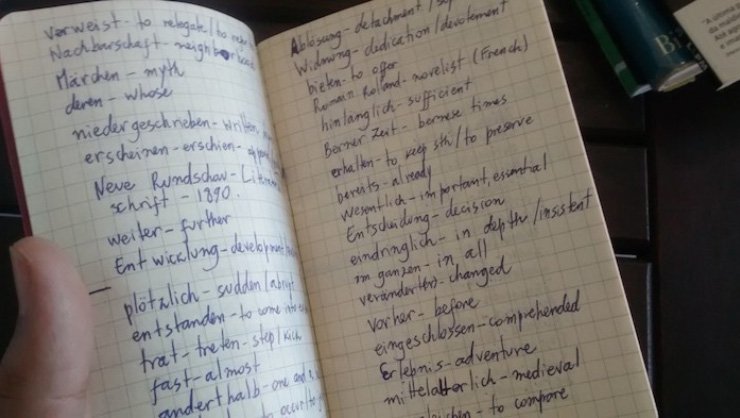 verweist - to relegate / to
Nachbarschaft - neighborhood
Märchen - myth
deren - whose
niedergeschrieben - written
erscheinen - erschien -
Neue Rundschau -
schrift - 1890.
weiter - further
Entwicklung - development
plötzlich - sudden /
entstanden - to come
trat - treten - step / kick
fast - almost
anderthalb - one and
to occur
Ablösung - detachment /
Widmung - dedication / devotement
bieten - to offer
Romain Rolland - novelist (French)
hinlänglich - sufficient
Berner Zeit - bernese times
erhalten - to keep sth / to preserve
bereits - already
wesentlich - important, essential
Entscheidung - decision
eindringlich - in depth / insistent
im ganzen - in all
verändert - changed
vorher - before
eingeschlossen - comprehended
Erlebnis - adventure
mittelalterlich - medieval
- to compare
Bi
"A